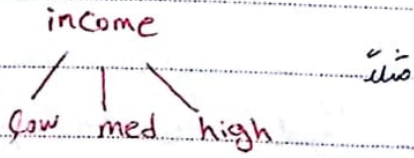 income
مثلاً
low med high